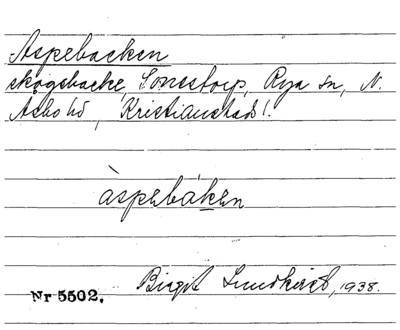 Aspebacken
skogsbacke, Sonestorp, Rya sn, N.
Åsbo hd, Kristianstads l.
àspebáken
Birgit Lundkvist, 1938.
Nr 5502.